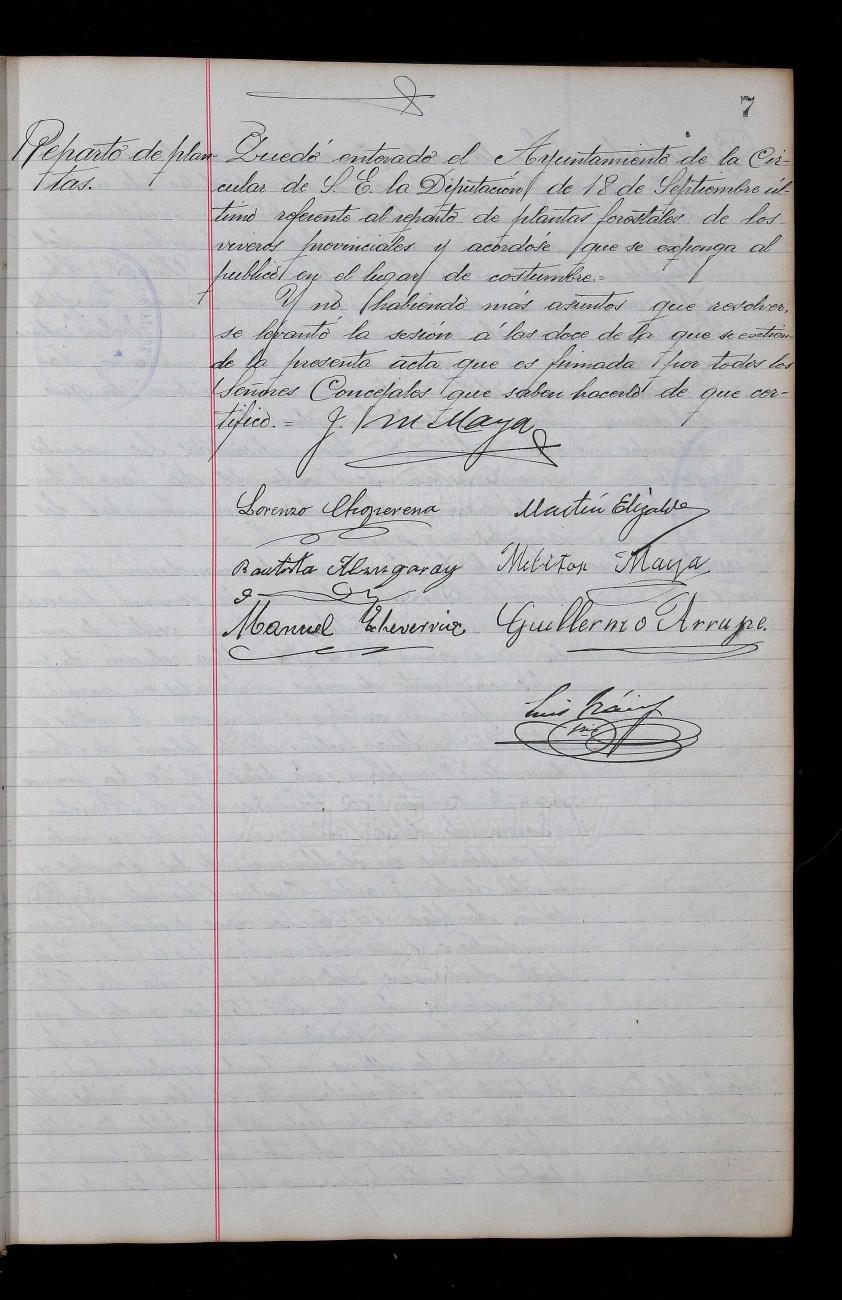 7
Reparto de plan-
tas.
Quedó enterado el Ayuntamiento de la Cir-
cular de S. E. la Diputación de 18 de Septiembre úl-
timo referente al reparto de plantas forestales de los
viveros provinciales y acordóse que se exponga al
publico en el lugar de costumbre.=
Y no habiendo mas asuntos que resolver,
se levantó la sesión á las doce de la que se extien-
de la presente acta que es firmada por todos los
Señores Concejales que saben hacerlo de que cer-
tifico.= J. M. Maya
Lorenzo Choperena Martín Elizalde
Bautista Maya
Manuel Echeverria Guillermo Arrupe.
Luis